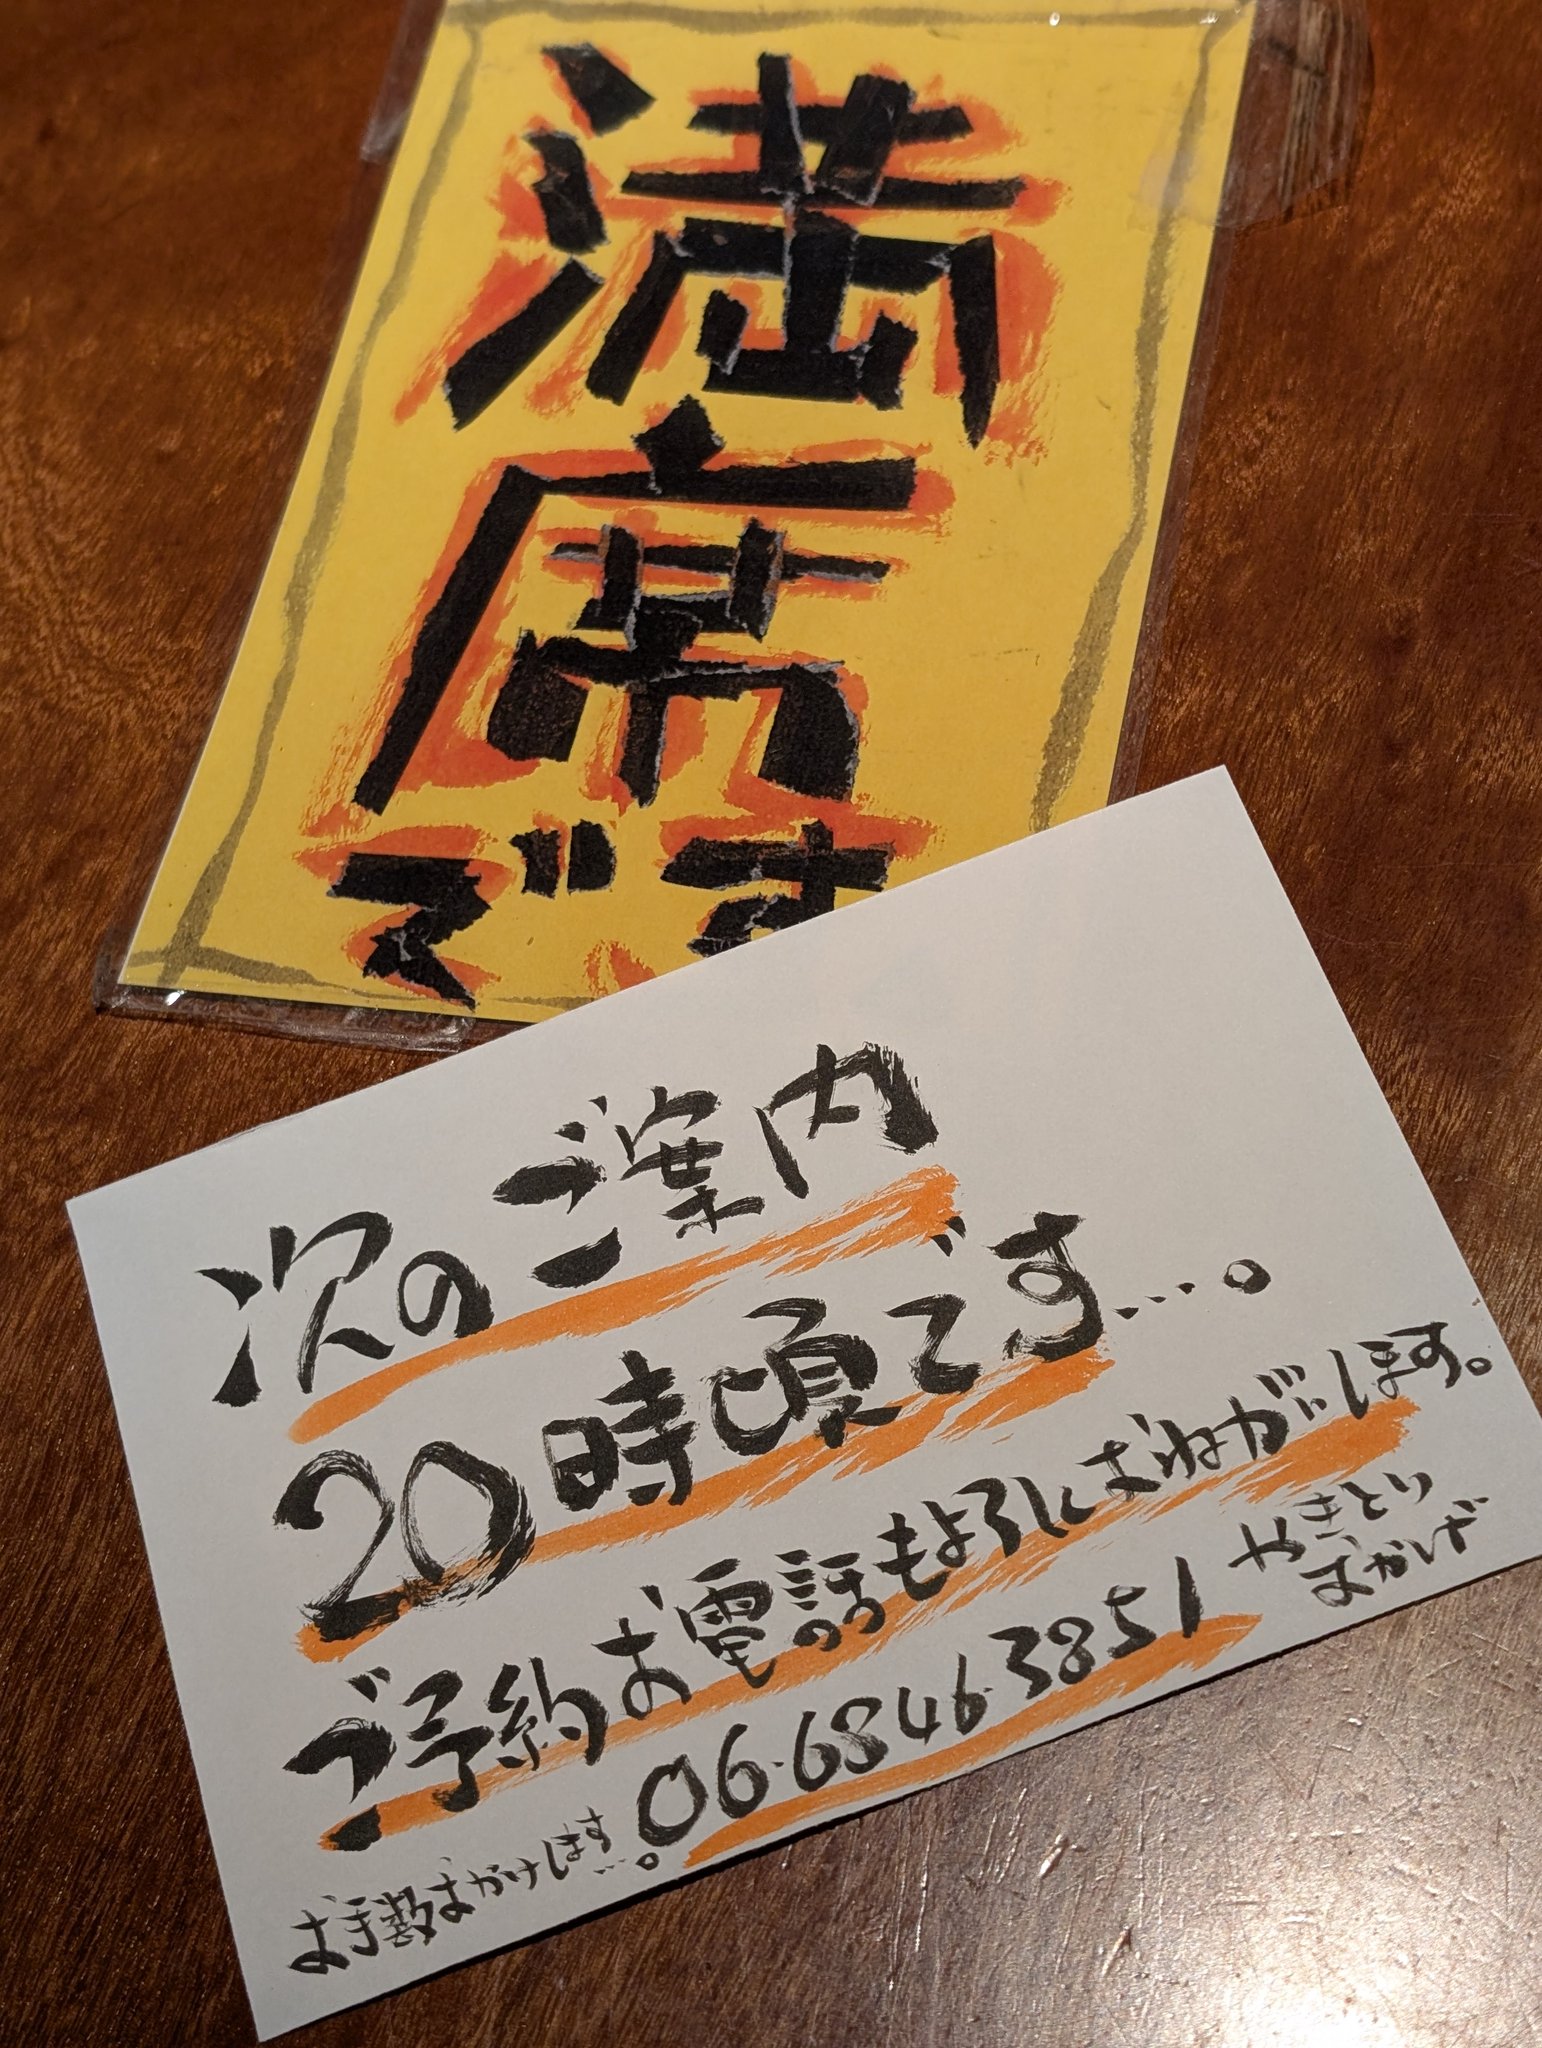 満
席
です
次のご案内
20時頃です…。
ご予約お電話のもよろしくおねがいします。
06-6846-3851
やきとり
おかげ
お手数おかけします…。